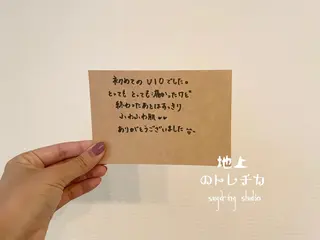 初めての VIO でした。
とっても とっても 痛かったけど
終わったあとはすっきり
ふわふわ肌♡♡
ありがとうございました
地上
のトレチカ